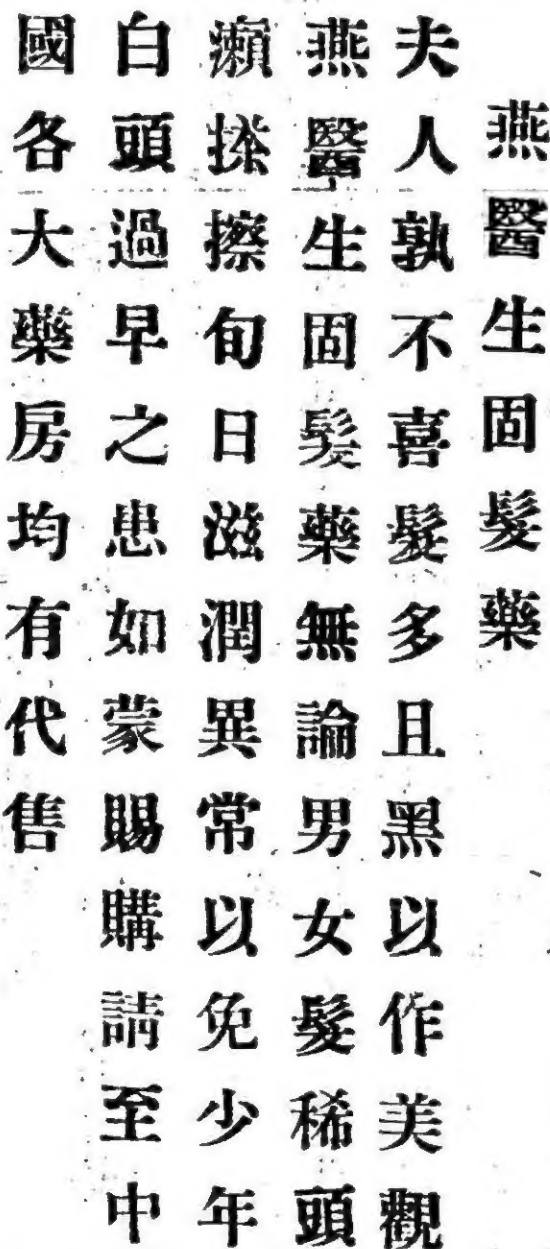 燕醫生固髮藥
夫人孰不喜髮多且黑以作美觀
燕醫生固髮藥無論男女髮稀頭
癩搽擦旬日滋潤異常以免少年
白頭過早之患如蒙賜購請至中
國各大藥房均有代售